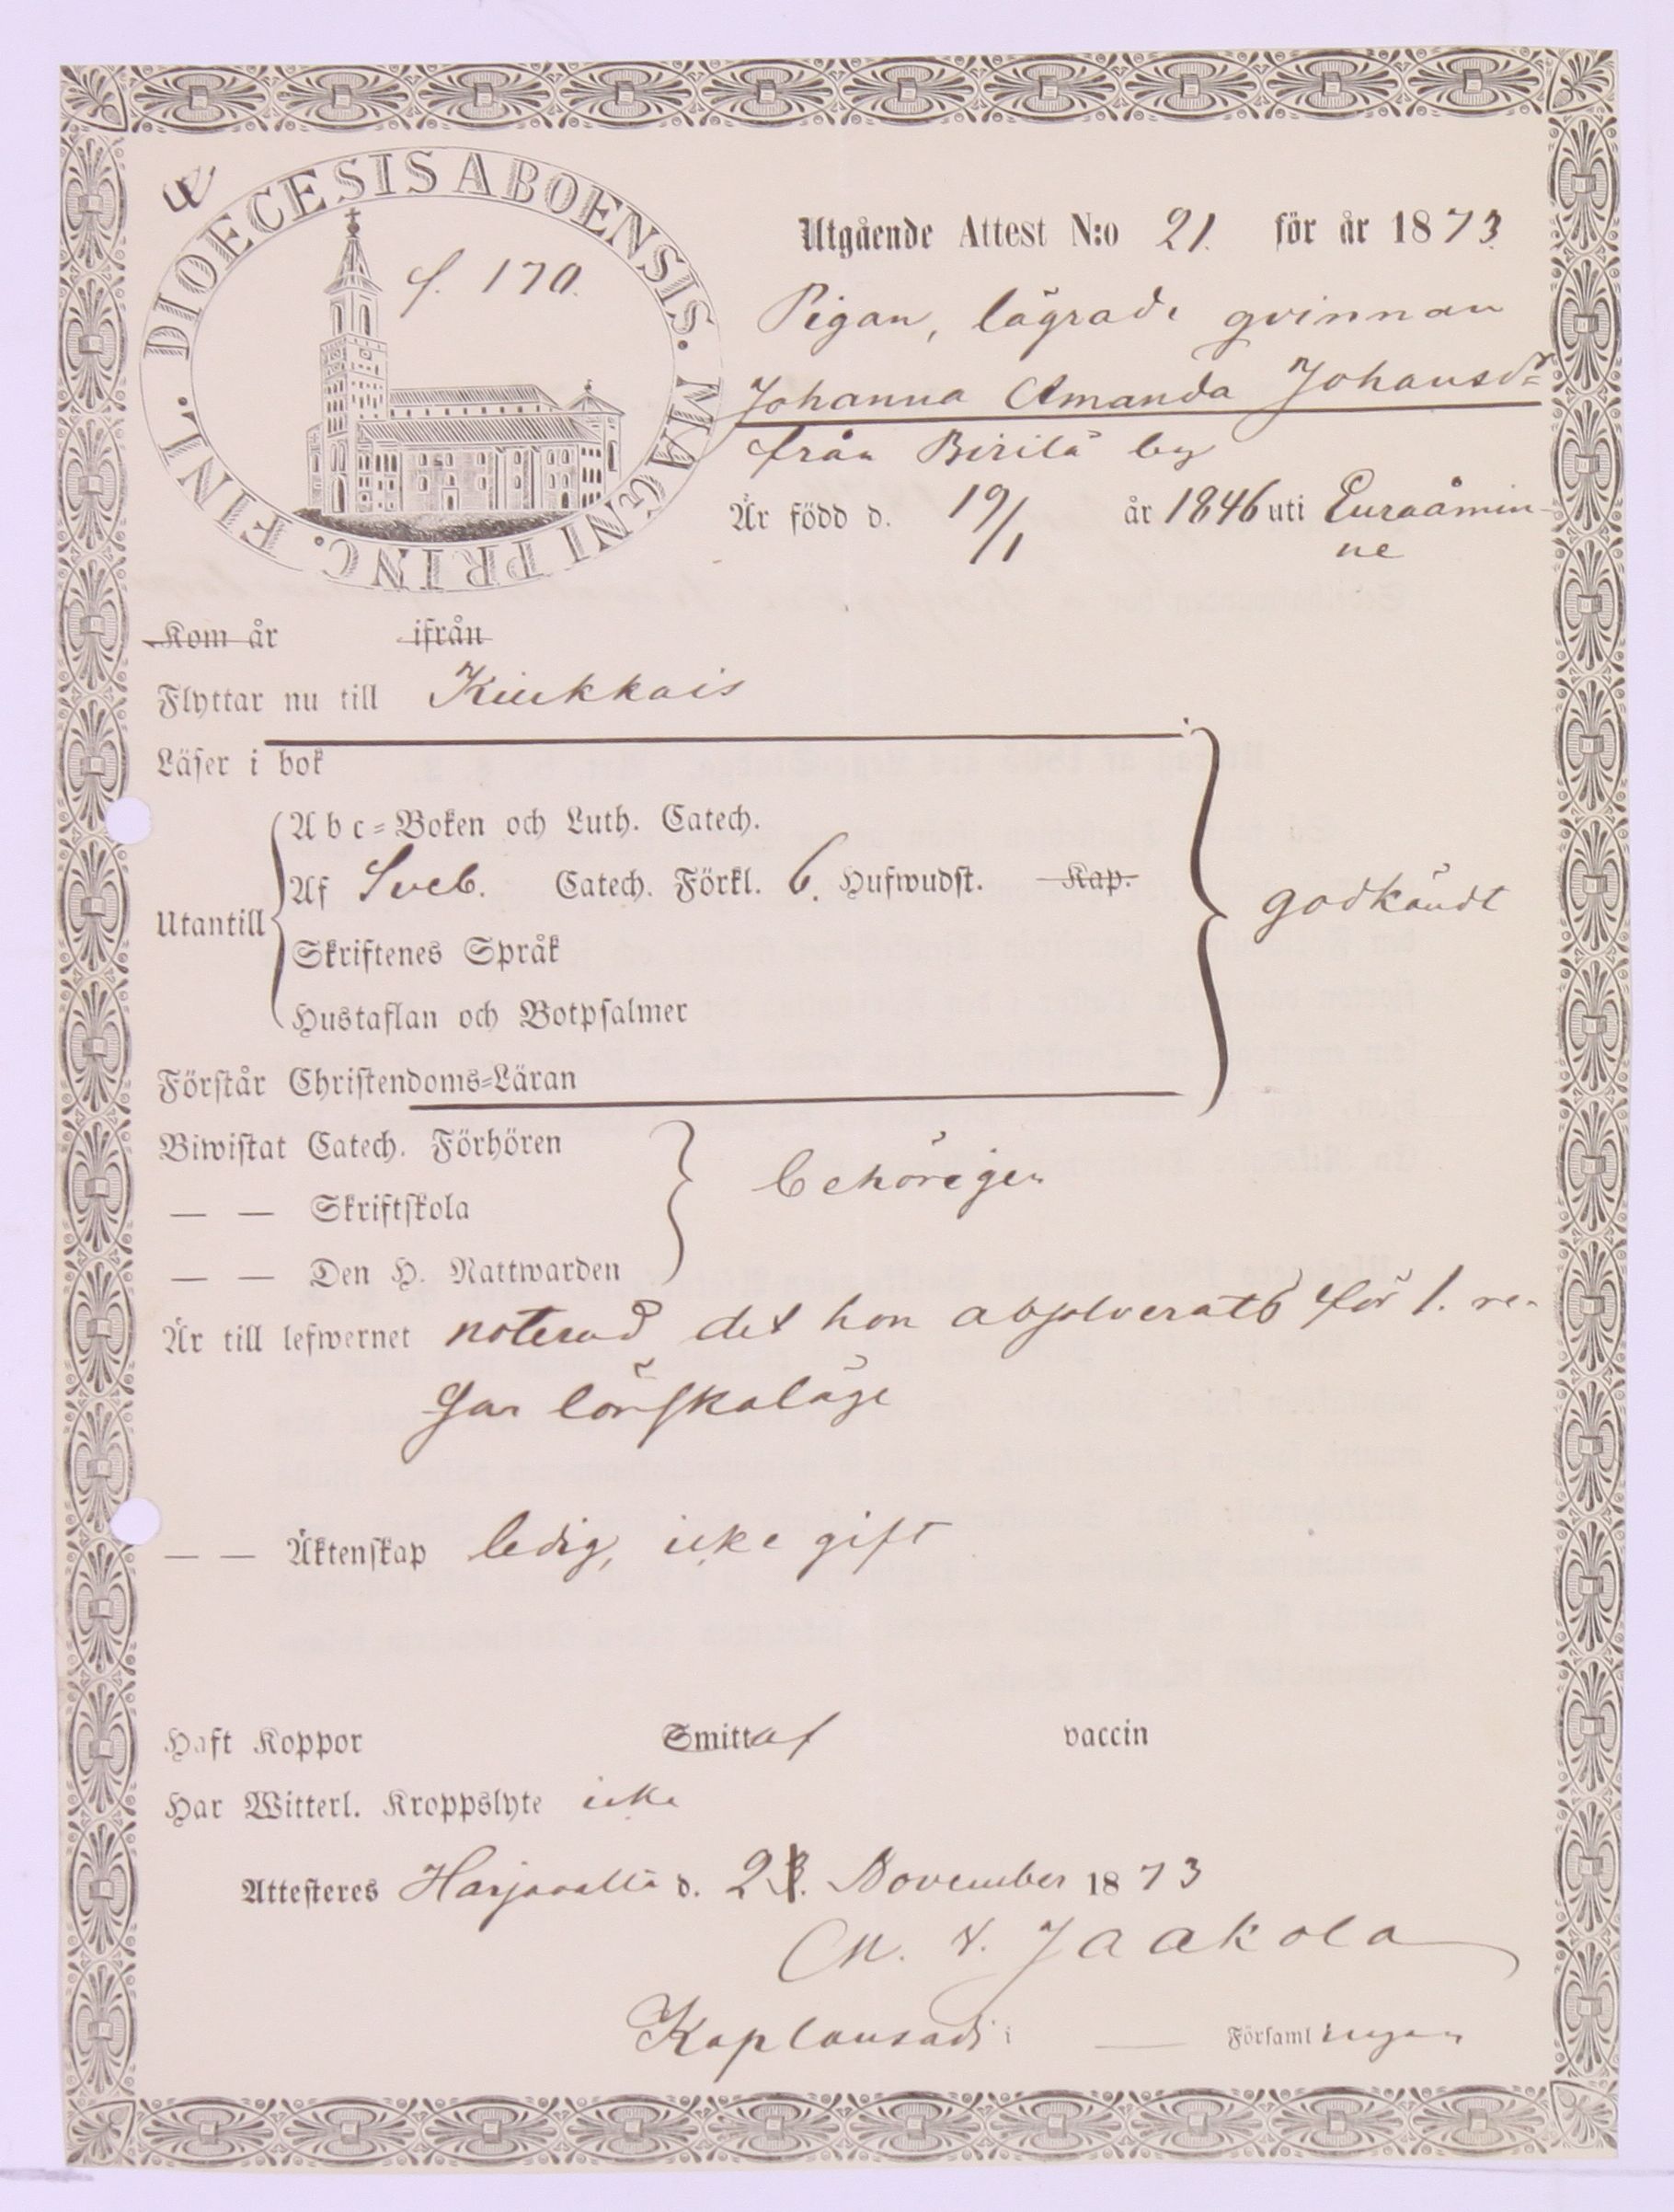 DIOECESIS ABOENSIS. MAGNI PRINC. FINL.
f. 170.
Utgående Attest N:o 21. för år 1873.
Pigan, lägrade qvinnan
Johanna Amanda Johansdr
från Birilä by
Är född d. 19/1 år 1846 uti Euraåmin-
ne
Kom år ifrån
Flyttar nu till Kiukkais
Läser i bok
Abc-Boken och Luth. Catech.
Af Sveb. Catech. Förkl. 6. Hufwudst. Kap.
Utantill
godkändt
Skriftenes Språk
Hustaflan och Botpsalmer
Förstår Christendoms-Läran
Biwistat Catech. Förhören
behörigen
— — Skriftskola
— — Den H. Nattwarden
Är till lefwernet noterad det hon absolverats för 1. re-
san lönskaläge
— — Äktenskap ledig, icke gift
Haft Koppor Smittaf vaccin
Har Witterl. Kroppslyte icke
Attesteres Harjavalta d. November 1873
Jaakola
Kaplansadj. i — Församlingen